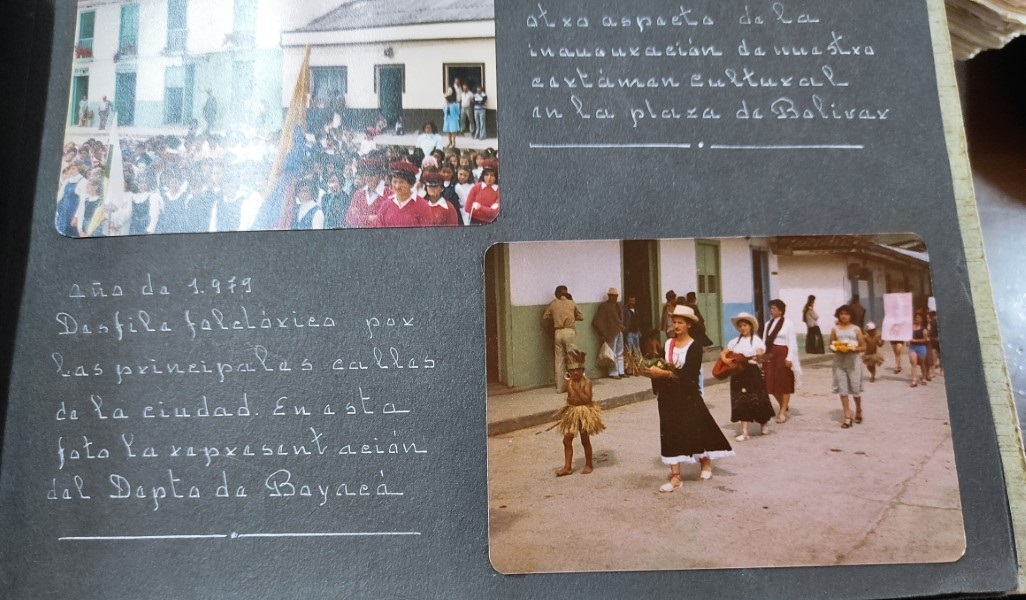 otro aspecto de la
inauguración de nuestro
certámen cultural
en la plaza de Bolivar
año de 1.979
Desfile folclórico por
las principales calles
de la ciudad. En esta
foto la represent ación
del Depto de Boyacá